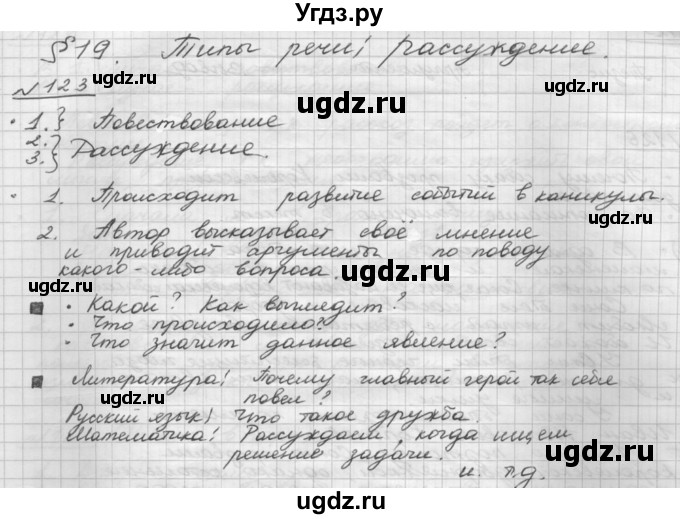 Угдз.ру
§19. Типы речи: рассуждение.
№123
• 1.} Повествование
2.}
3.} Рассуждение.
• 1. Происходит развитие событий в каникулы.
2. Автор высказывает своё мнение
и приводит аргументы по поводу
какого-либо вопроса.
• Какой? Как выглядит?
• Что происходило?
• Что значит данное явление?
Литература: Почему главный герой так себя
повёл?
Русский язык: Что такое дружба.
Математика: Рассуждаем, когда ищем
решение задачи.
и т.д.
ugdz.ru
ugdz.ru
ugdz.ru
ugdz.ru
ugdz.ru
ugdz.ru
ugdz.ru
ugdz.ru
ugdz.ru
ugdz.ru
ugdz.ru
ugdz.ru
ugdz.ru